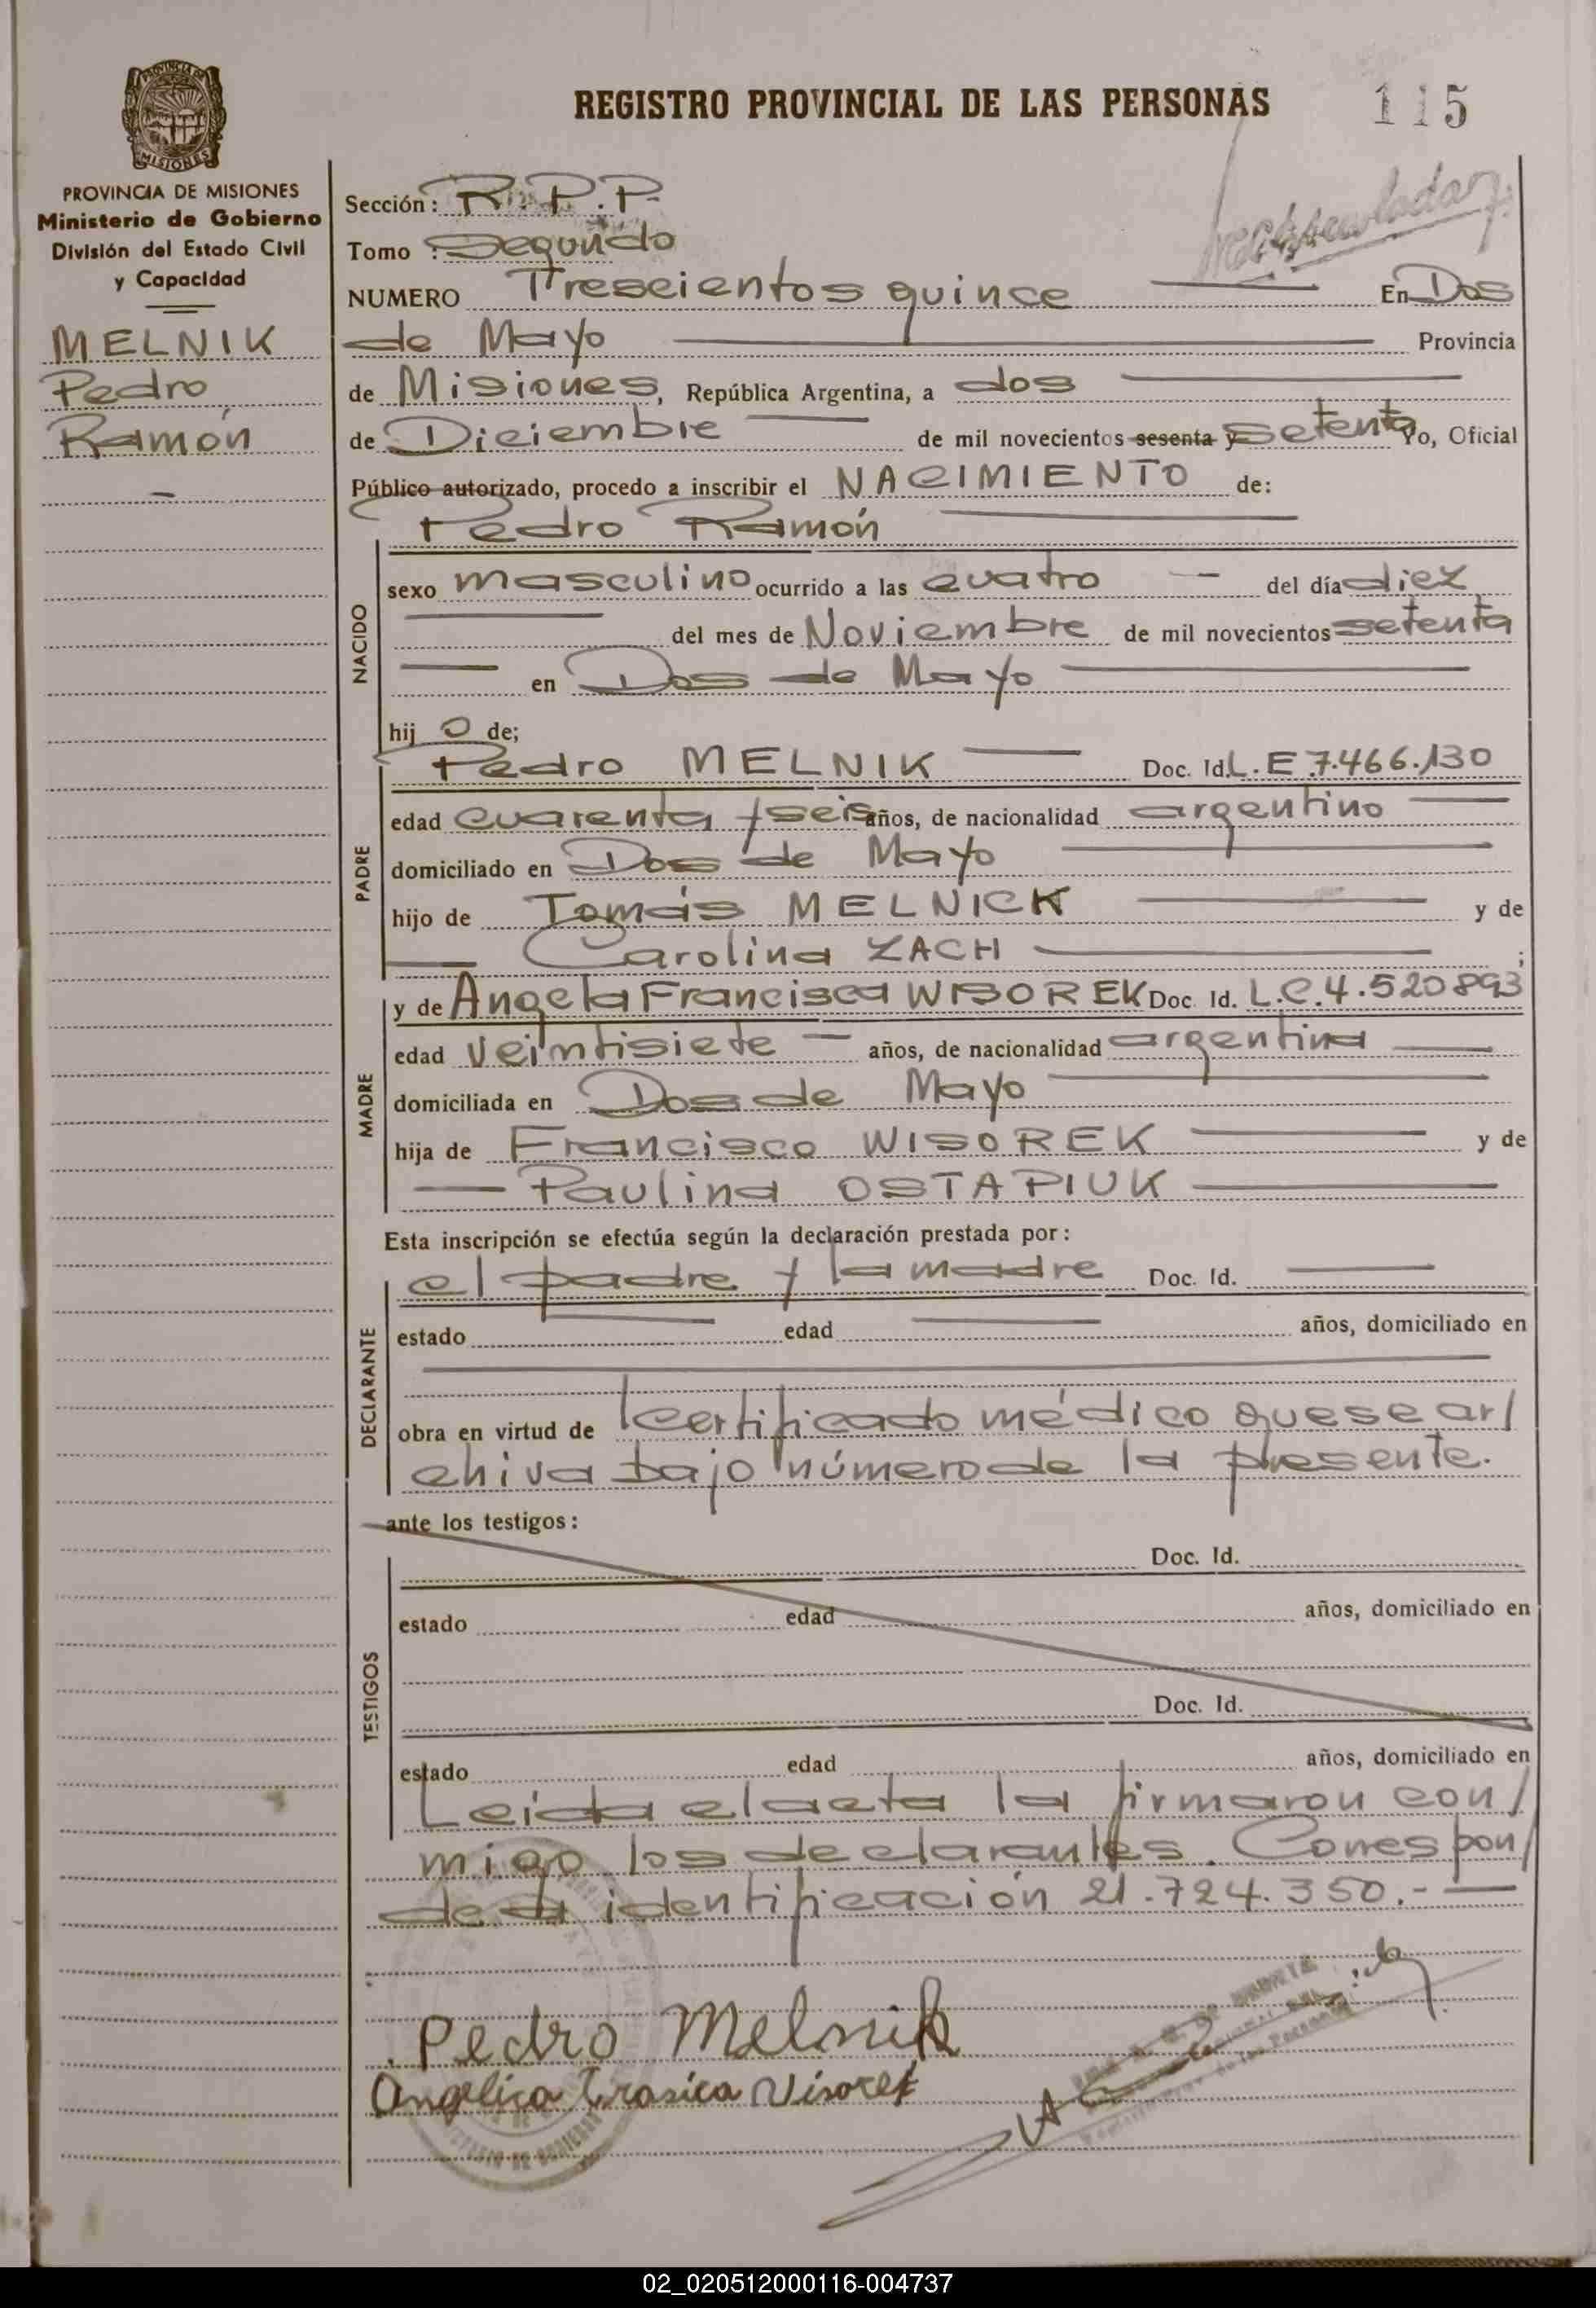 REGISTRO PROVINCIAL DE LAS PERSONAS
115
MISIONES
PROVINCIA DE MISIONES
Ministerio de Gobierno
División del Estado Civil
y Capacidad
MELNIK
Pedro
Ramón
Sección: R.P.P.
Tomo : Segundo
NUMERO Trescientos quince En Dos
de Mayo Provincia
de Misiones, República Argentina, a dos
de Diciembre de mil novecientos sesenta y setenta Yo, Oficial
Público autorizado, procedo a inscribir el NACIMIENTO de:
Pedro Ramón
NACIDO
sexo masculino ocurrido a las cuatro del día diez
del mes de Noviembre de mil novecientos setenta
en Dos de Mayo
hij o de;
PADRE
Pedro MELNIK Doc. Id. L.E 7.466.130
edad cuarenta y seis años, de nacionalidad argentino
domiciliado en Dos de Mayo
hijo de Tomás MELNICK y de
Carolina ZACH ;
MADRE
y de Angela Francisca WISOREK Doc. Id. L.C.4.520893
edad veintisiete años, de nacionalidad argentina
domiciliada en Dos de Mayo
hija de Francisco WISOREK y de
Paulina OSTAPIUK
Esta inscripción se efectúa según la declaración prestada por:
DECLARANTE
el padre y la madre Doc. Id.
estado edad años, domiciliado en
obra en virtud de certificado médico que se ar/
chiva bajo número de la presente.
ante los testigos:
TESTIGOS
Doc. Id.
estado edad años, domiciliado en
Doc. Id.
estado edad años, domiciliado en
Leida el acta la firmaron con/
migo los declarantes. Correspon/
de a identificación 21.724.350.-
Pedro Melnik
02_020512000116-004737